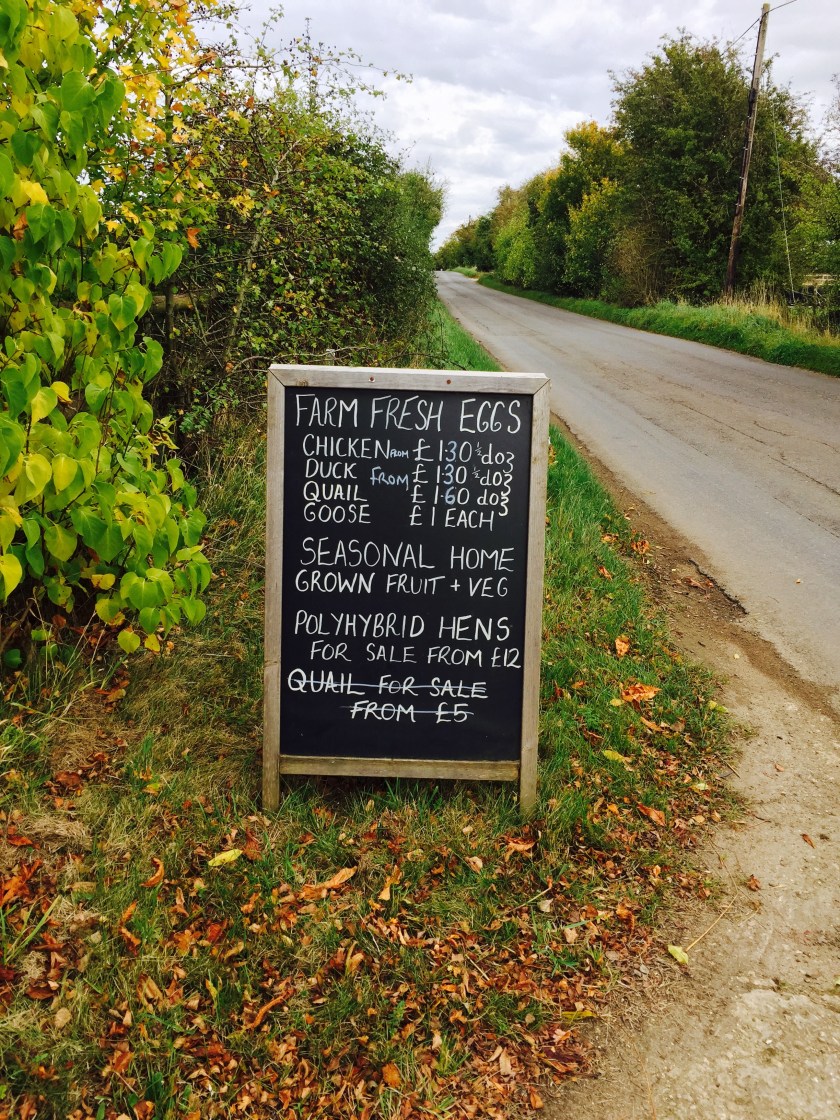 FARM FRESH EGGS
CHICKEN FROM £1.30 ½ doz
DUCK FROM £1.30 ½ doz
QUAIL £1.60 doz
GOOSE £1 EACH
SEASONAL HOME
GROWN FRUIT + VEG
POLYHYBRID HENS
FOR SALE FROM £12
QUAIL FOR SALE
FROM £5